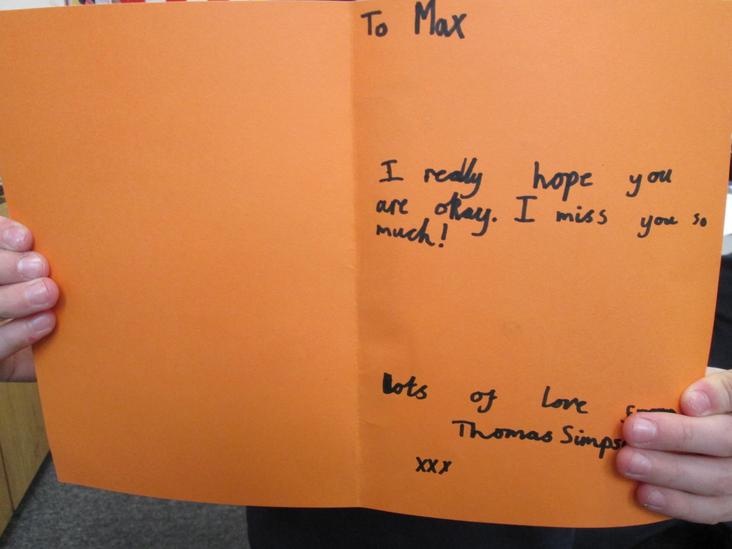 To Max
I really hope you
are okay. I miss you so
much!
Lots of love
Thomas
xxx